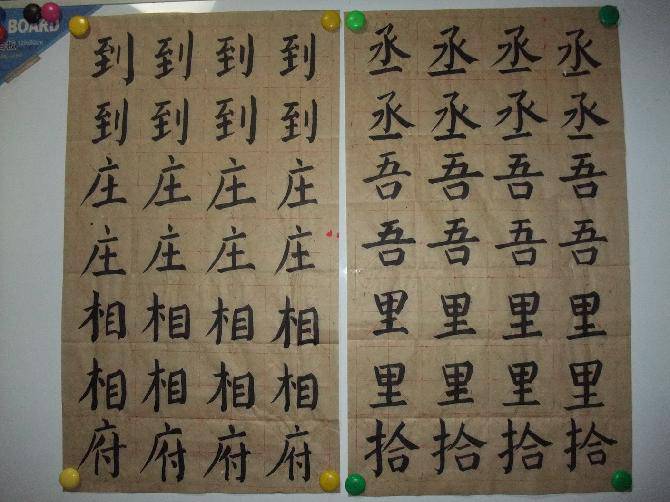 BOARD
到到到到
到到到到
庄庄庄庄
庄庄庄庄
相相相相
相相相相
府府府府
丞丞丞丞
丞丞丞丞
吾吾吾吾
吾吾吾吾
里里里里
里里里里
拾拾拾拾